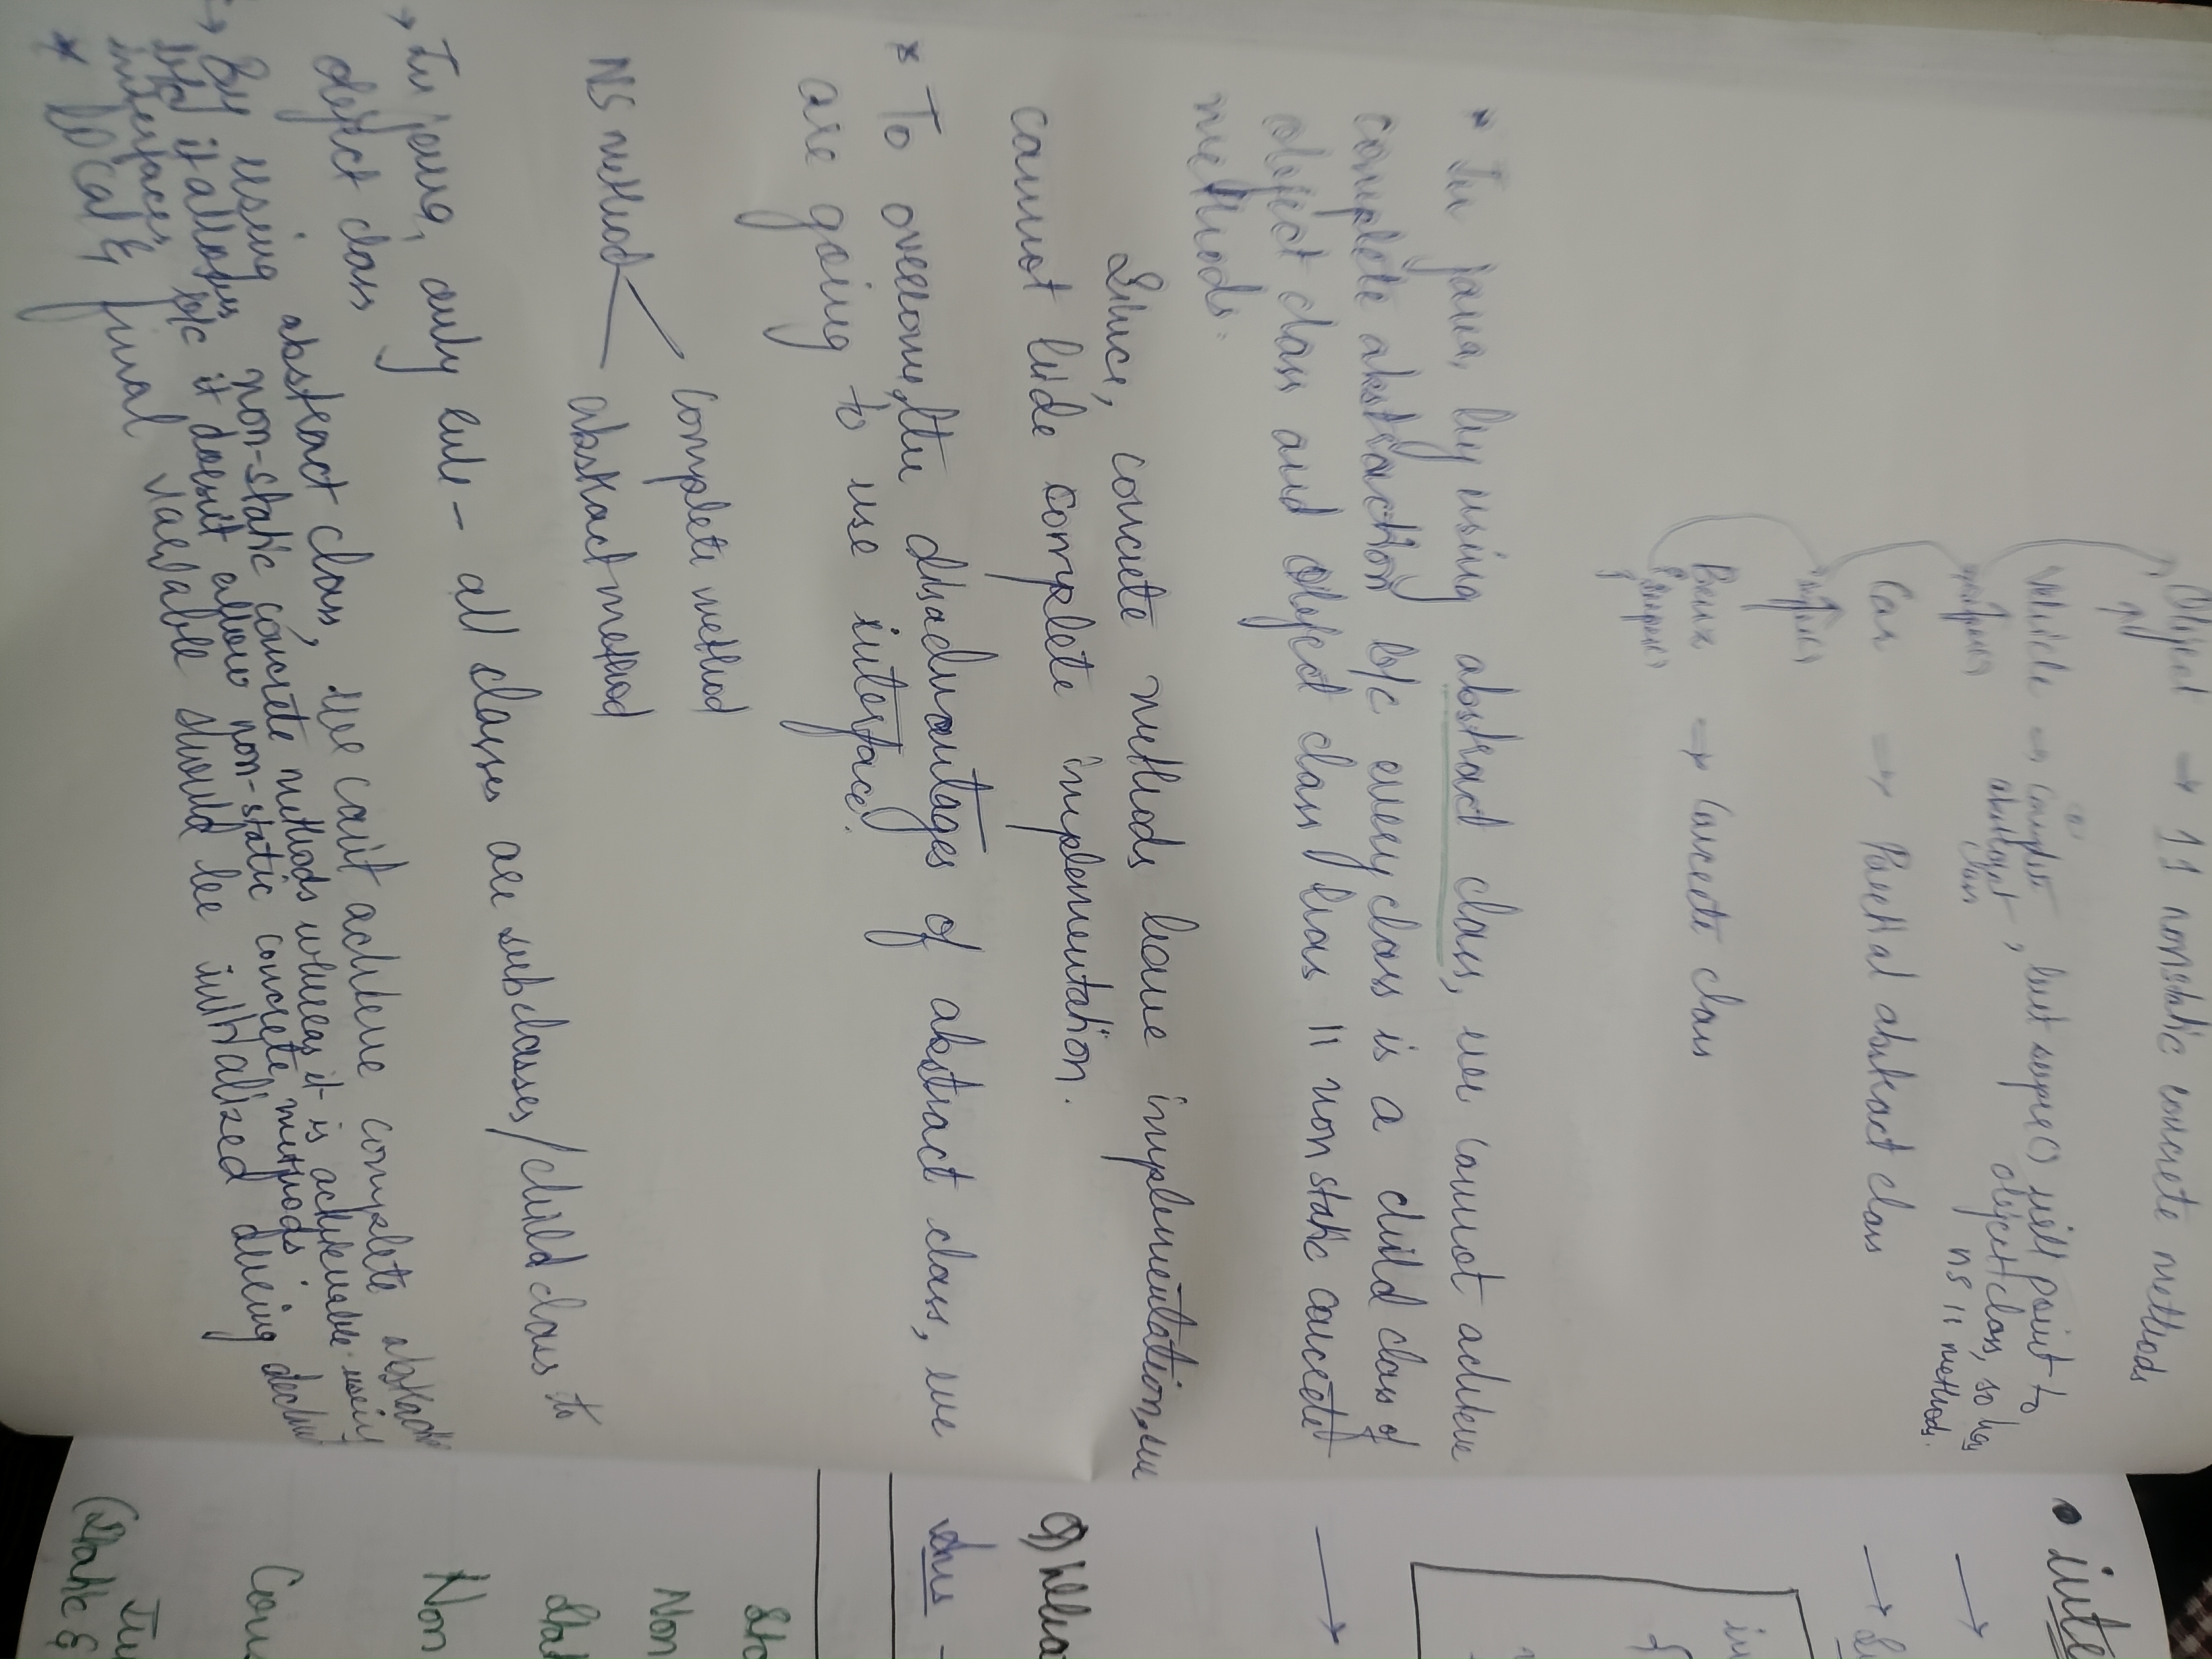 Object → 11 nonstatic concrete methods
Vehicle → Complete abstract class, but super() will point to object class, so has ns 11 methods.
Car → Partial abstract class
→ Concrete class
* In java, by using abstract class, we cannot achieve
complete abstraction b/c every class is a child class of
object class and object class has 11 non static concrete
methods.
Since, concrete methods have implementation, we
cannot hide complete implementation.
* To overcome, the disadvantages of abstract class, we
are going to use interface.
complete method
NS method
abstract method
→ In java, only rule - all classes are subclasses/child class to
object class
→ By using abstract class, we can't achieve complete
non-static concrete methods whereas it is achievable using
interfaces b/c it doesn't allow non-static concrete methods
* local & final variable should be initialized during
• inte
→
→
→
Non
Non
(Static &